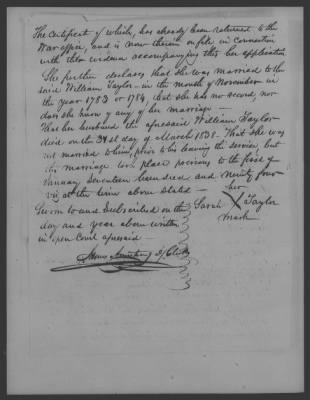 The certificate of which, has already been returned to the
War office, and is now therein on file in connection
with other evidence accompanying this her application
She further declares that she was married to the
said William Taylor - in the month of November in
the year 1783 or 1784, that she has no record, nor
does she know of any of her marriage -
That her husband the aforesaid William Taylor
died on the 31st day of March 1838 - That she was
not married to him, prior to his leaving the service, but
the marriage took place previous to the first of
January Seventeen hundred and Ninety four
viz at the time above stated -
her
Sworn to and Subscribed on the Sarah X Taylor
day and year above written mark
in open Court aforesaid -
Clerk